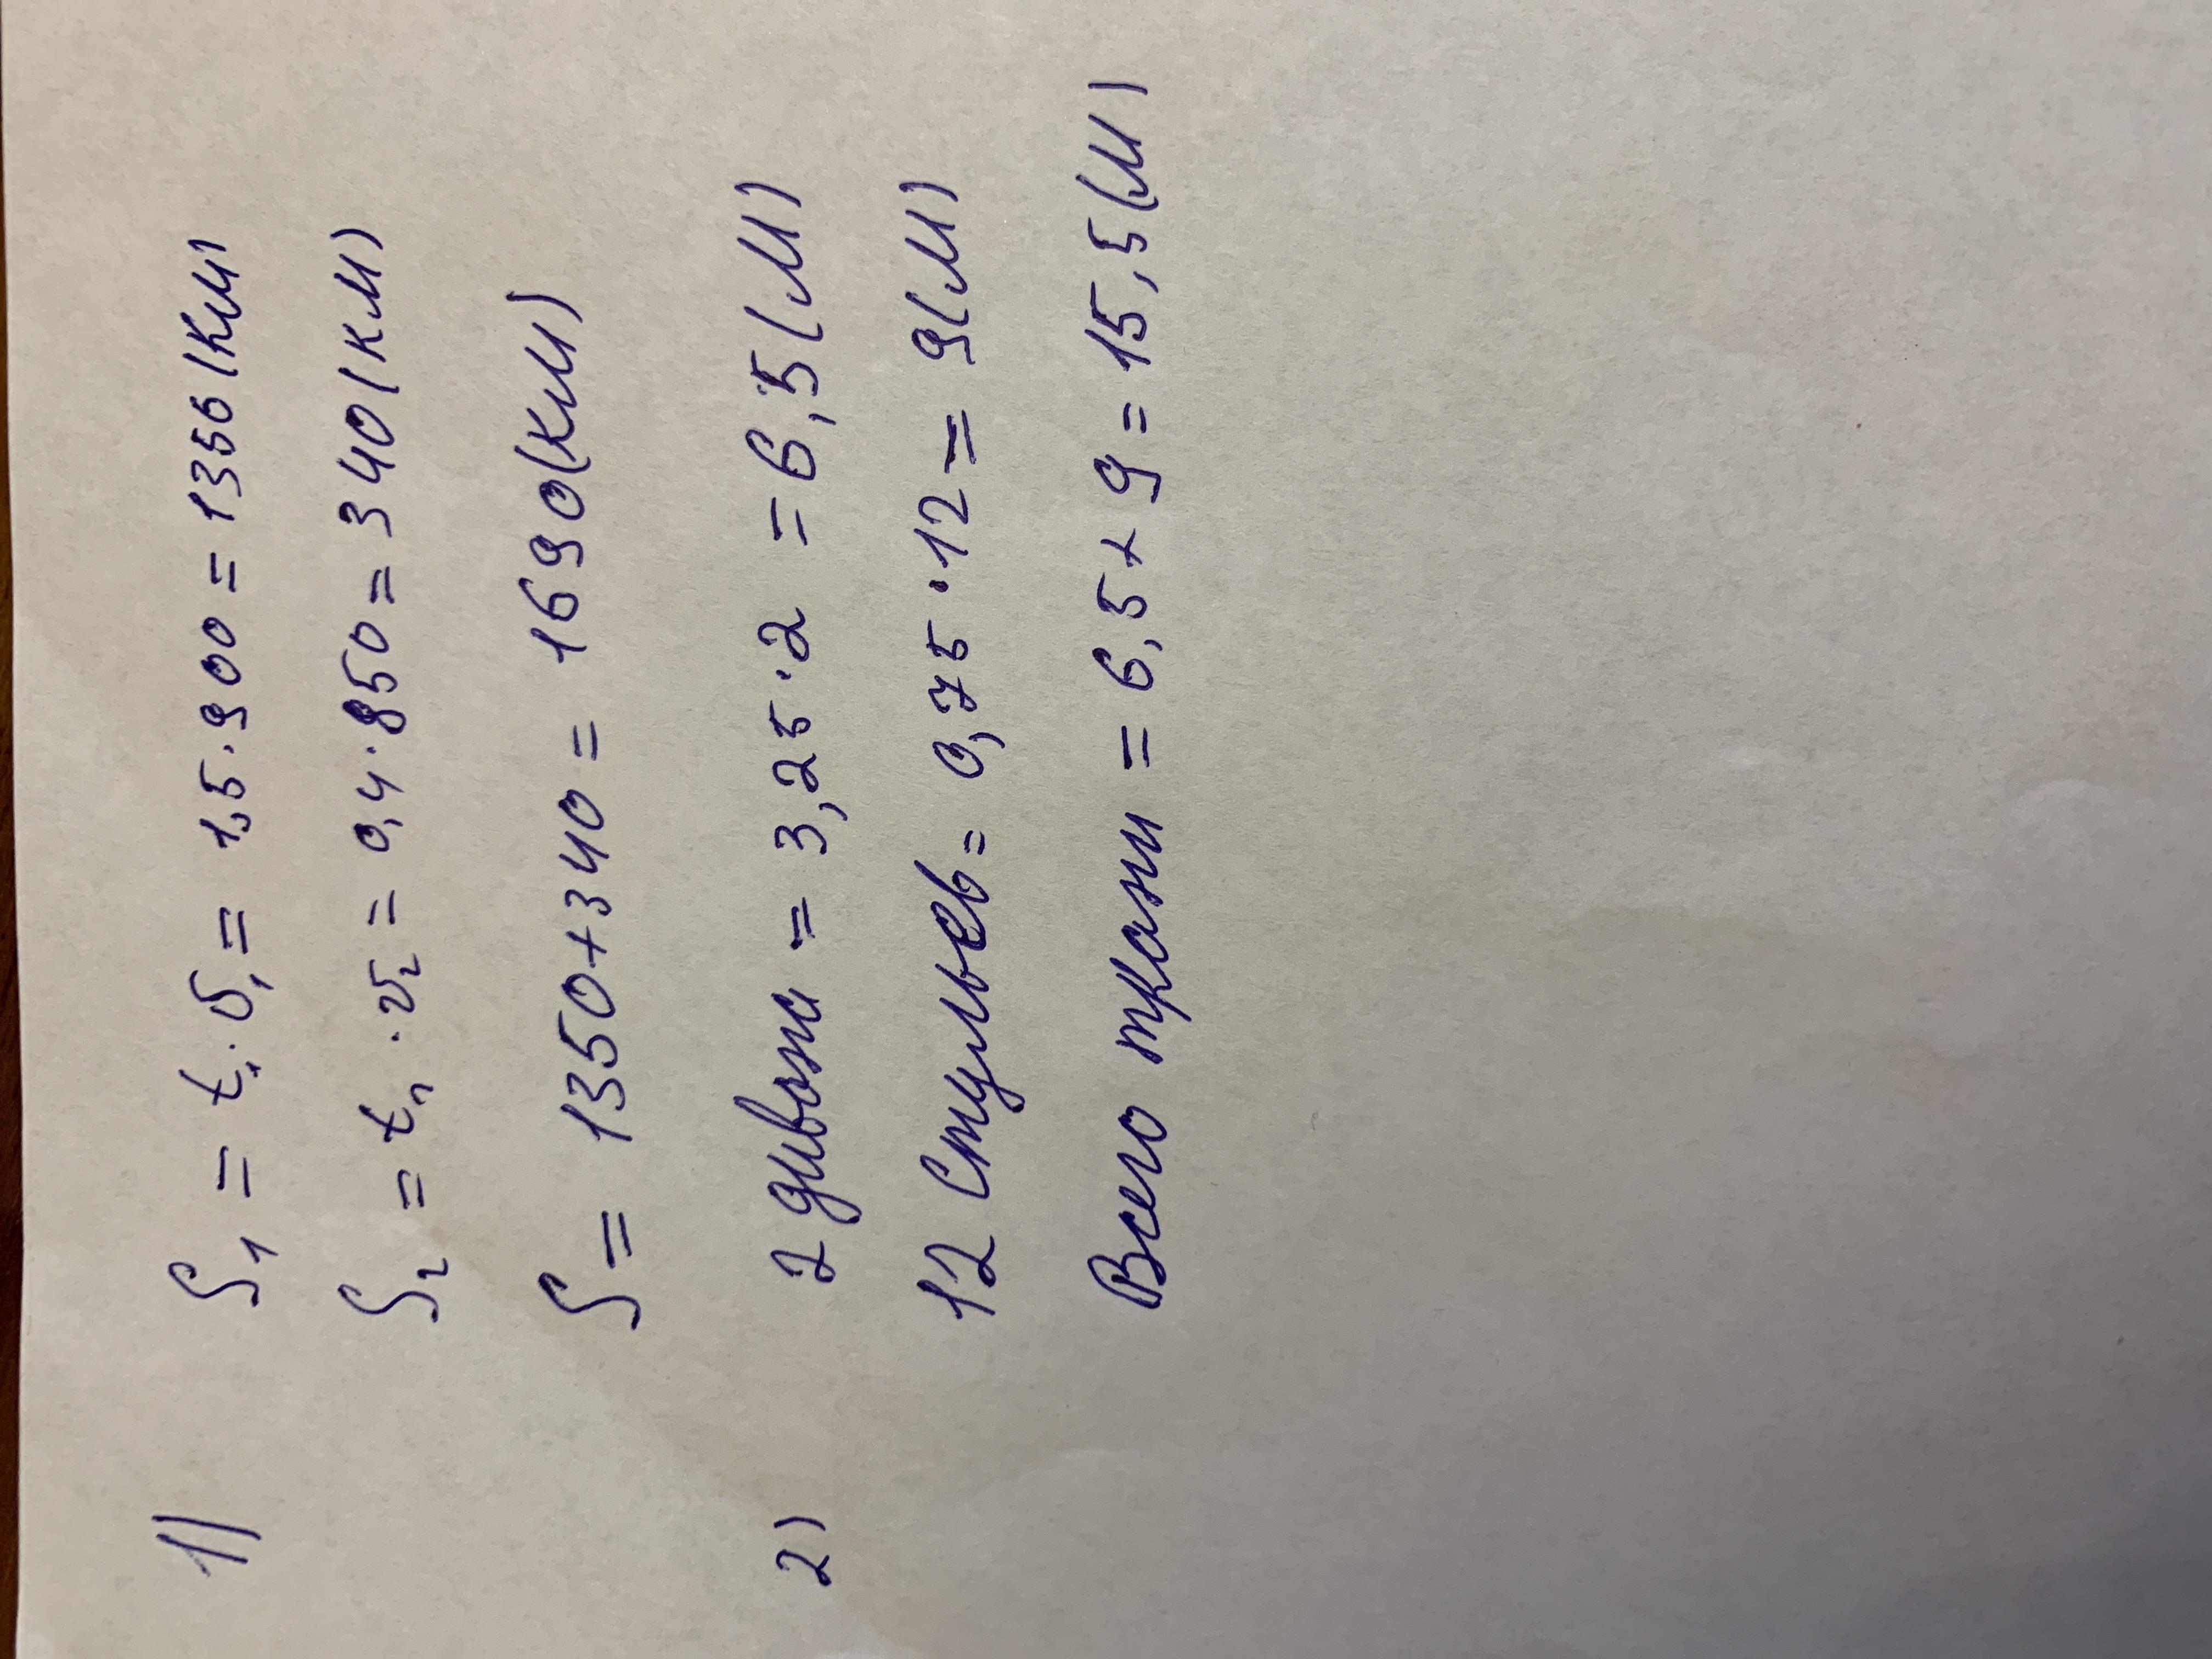 1) S₁ = t₁ · v₁ = 1,5 · 900 = 1350 (км)
S₂ = t₂ · v₂ = 0,4 · 850 = 340 (км)
S = 1350 + 340 = 1690 (км)
2) 2 дивана = 3,25 · 2 = 6,5 (м)
12 стульев = 0,75 · 12 = 9 (м)
Всего ткани = 6,5 + 9 = 15,5 (м)